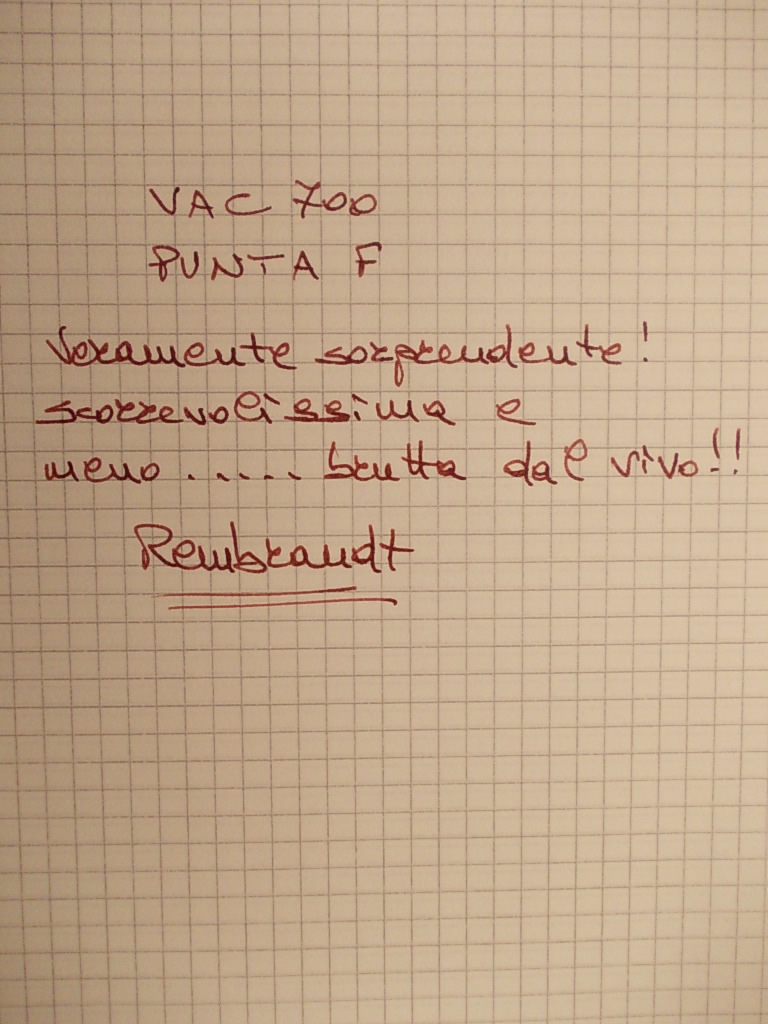 VAC 700
PUNTA F
Veramente sorprendente!
scorrevolissima e
meno ..... brutta dal vivo!!
Rembrandt